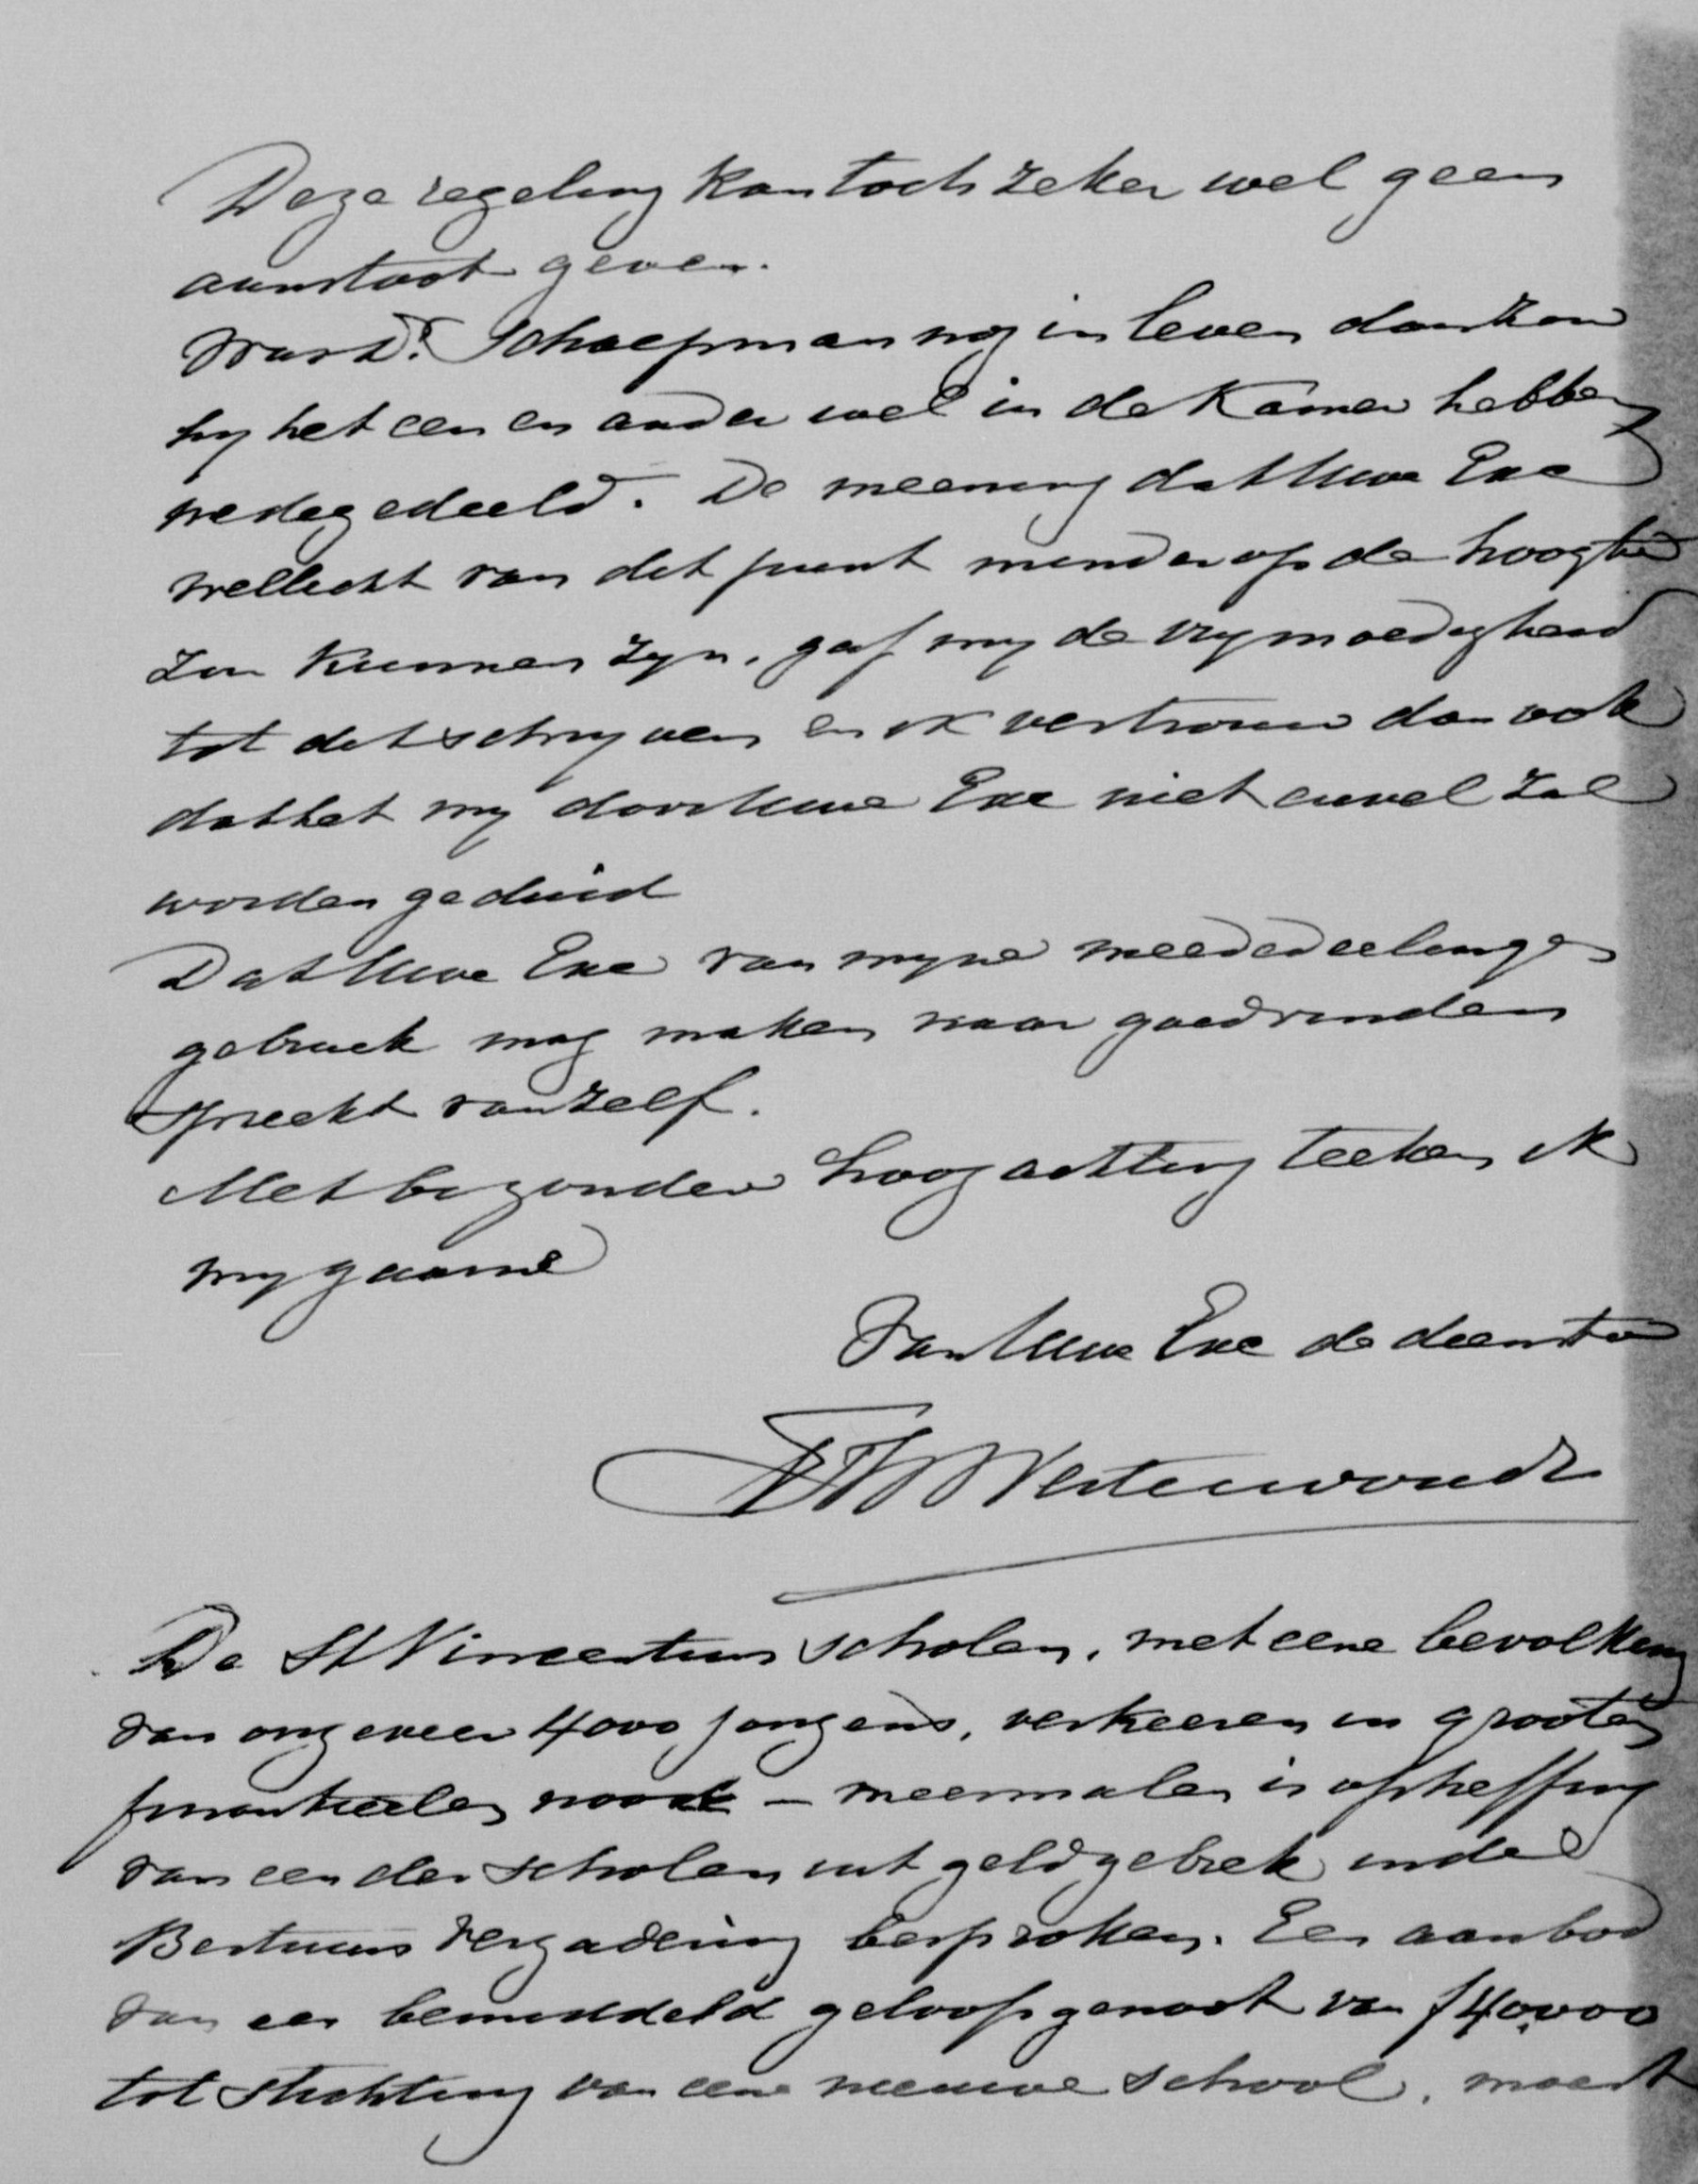 Deze regeling kan toch zeker wel geen
aanstoot geven.
Was Dr. Schaepman nog in leven dan zou
hy het een en ander wel in de Kamer hebben
medegedeeld. De meening dat Uwe Exe
wellicht van dit punt minder op de hoogte
zou kunnen zyn, gaf my de vrymoedigheid
tot dit schryven en ik vertrouw dan ook
dat het my door Uwe Exe niet euvel zal
worden geduid
Dat Uwe Exe van myne meededeelingen
gebruik mag maken naar goedvinden
spreekt vanzelf.
Met byzondere hoogachting teeken ik
my gaarne
Van Uwe Exe de dienstw
Westerwoudt
De St Vincentius scholen, met eene bevolking
van ongeveer 4000 jongens, verkeeren in grooten
finantieelen nood – meermalen is opheffing
van een der scholen uit geldgebrek in de
Bestuurs vergadering besproken. Een aanbod
van een bemiddeld geloofsgenoot van f 40,000
tot stichting van eene nieuwe school, moest